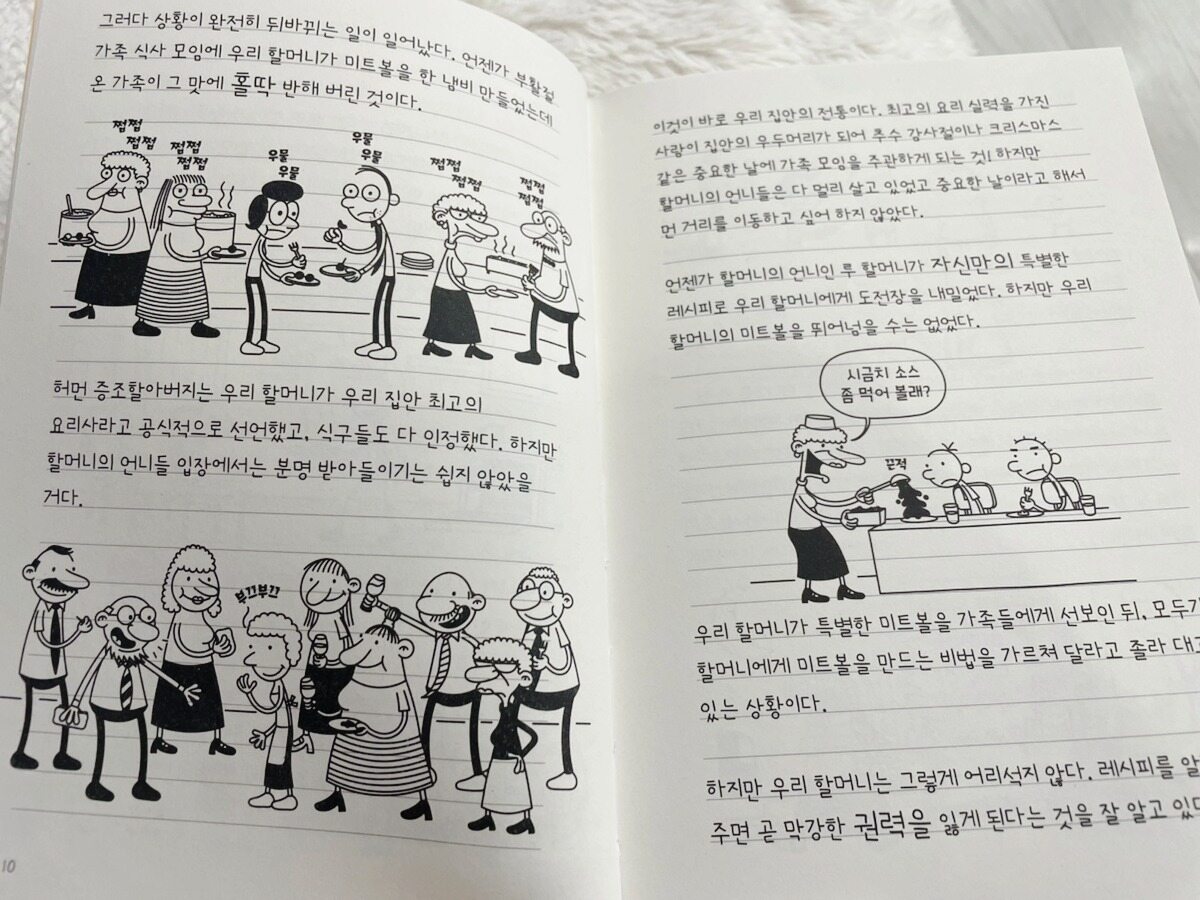 그러다 상황이 완전히 뒤바뀌는 일이 일어났다. 언젠가 부활절
가족 식사 모임에 우리 할머니가 미트볼을 한 냄비 만들었는데
온 가족이 그 맛에 홀딱 반해 버린 것이다.
쩝쩝
쩝쩝
쩝쩝
쩝쩝
우물
우물
우물
우물
쩝쩝
쩝쩝
쩝쩝
쩝쩝
허먼 증조할아버지는 우리 할머니가 우리 집안 최고의
요리사라고 공식적으로 선언했고, 식구들도 다 인정했다. 하지만
할머니의 언니들 입장에서는 분명 받아들이기는 쉽지 않았을
거다.
부끄부끄
10
이것이 바로 우리 집안의 전통이다. 최고의 요리 실력을 가진
사람이 집안의 우두머리가 되어 추수 감사절이나 크리스마스
같은 중요한 날에 가족 모임을 주관하게 되는 것! 하지만
할머니의 언니들은 다 멀리 살고 있었고 중요한 날이라고 해서
먼 거리를 이동하고 싶어 하지 않았다.
언젠가 할머니의 언니인 루 할머니가 자신만의 특별한
레시피로 우리 할머니에게 도전장을 내밀었다. 하지만 우리
할머니의 미트볼을 뛰어넘을 수는 없었다.
시금치 소스
좀 먹어 볼래?
끈적
우리 할머니가 특별한 미트볼을 가족들에게 선보인 뒤, 모두가
할머니에게 미트볼을 만드는 비법을 가르쳐 달라고 졸라 대고
있는 상황이다.
하지만 우리 할머니는 그렇게 어리석지 않다. 레시피를 알
주면 곧 막강한 권력을 잃게 된다는 것을 잘 알고 있다